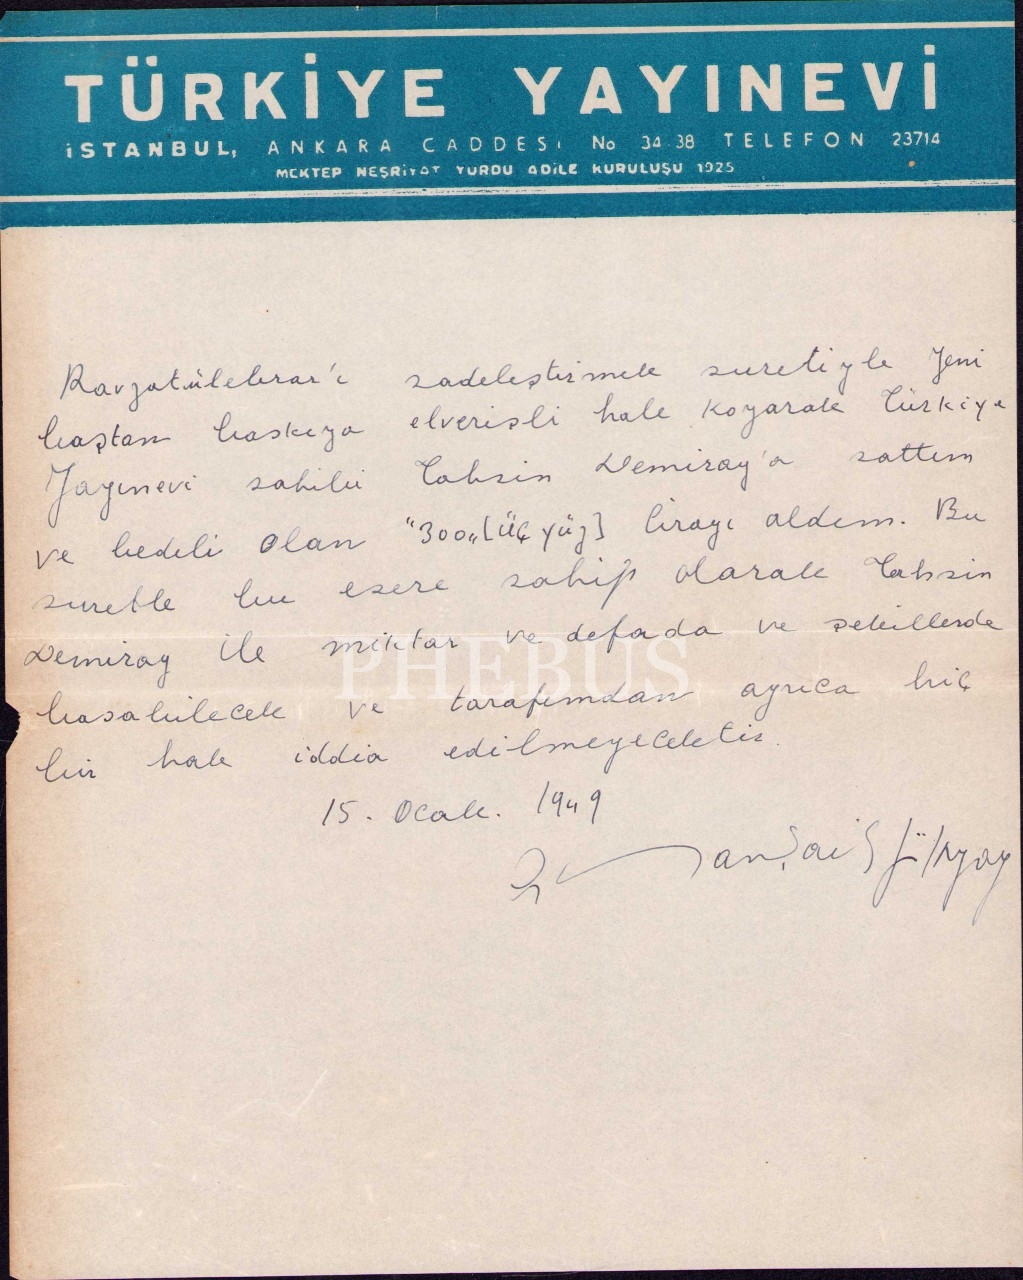 TÜRKİYE YAYINEVİ
İSTANBUL, ANKARA CADDESİ No 34-38 TELEFON 23714
MEKTEP NEŞRİYAT YURDU ADİLE KURULUŞU 1925
Ravzatülebrar'ı sadeleştirmek suretiyle Yeni
baştan baskıya elverişli hale koyarak Türkiye
Yayınevi sahibi Tahsin Demiray'a sattım
ve bedeli olan "300„ [Üç yüz] lirayı aldım. Bu
suretle bu esere sahip olarak Tahsin
Demiray ile miktar ve defada ve şekillerde
PHEBUS
basabilecek ve tarafımdan ayrıca hiç
bir hak iddia edilmeyecektir.
15. Ocak. 1949